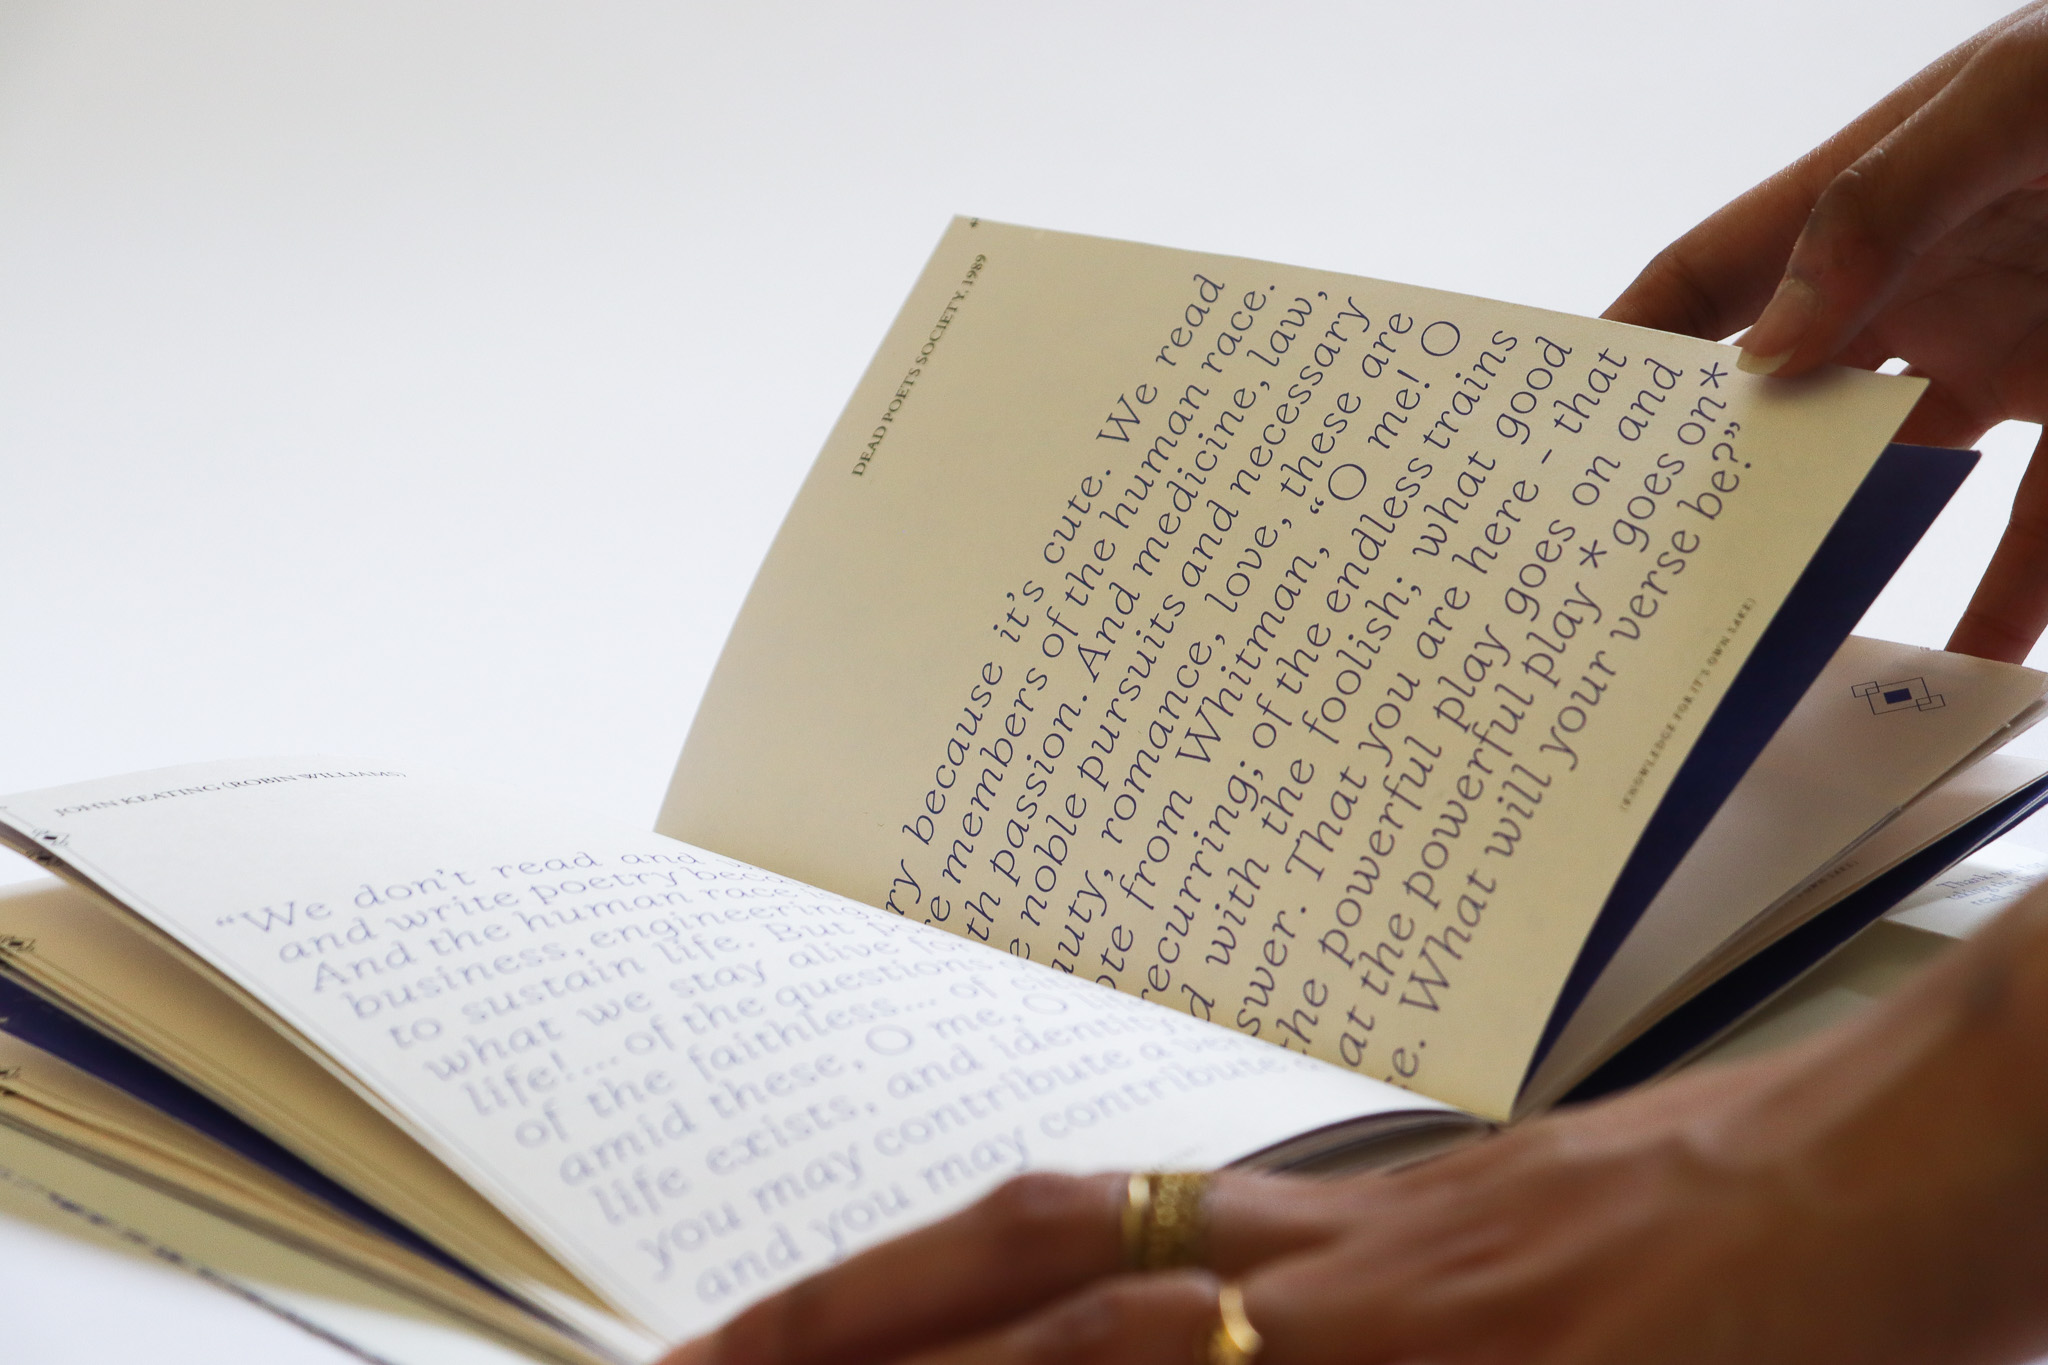 JOHN KEATING (ROBIN WILLIAMS)
“We don't read and
and write poetry beca
And the human race
business, engineering,
to sustain life. But po
what we stay alive for
life!... of the questions
of the faithless... of
amid these, O me, O li
life exists, and identity.
you may contribute a ver
and you may contribute
DEAD POETS SOCIETY, 1989
ry because it's cute. We read
re members of the human race.
th passion. And medicine, law,
e noble pursuits and necessary
auty, romance, love, these are
ote from Whitman, “O me! O
recurring; of the endless trains
d with the foolish; what good
swer. That you are here - that
the powerful play goes on and
at the powerful play * goes on*
e. What will your verse be?”
(KNOWLEDGE FOR IT'S OWN SAKE)